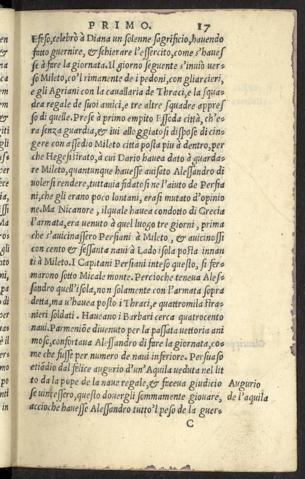 PRIMO. 17
Efeso, celebrò à Diana un solenne sagrificio, hauendo
fatto guernire, & schierare l'essercito, come s'hauesse
se à fare la giornata. Il giorno seguente s'inuiò uerso
Mileto, co'l rimanente de i pedoni, con gli arcieri,
e gli Agriani con la cauallaria de Thraci, e la squadra
regale de suoi amici, e tre altre squadre appresso
di quelle. Prese à primo empito Essoda città, ch'era
senza guardia, & iui alloggiatosi dispose di cingere
con assedio Mileto città posta più à dentro, perche
Hegesistrato, à cui Dario hauea dato à guardare
Mileto, quantunque hauesse auisato Alessandro di
uolersi rendere, tuttauia fidatosi ne l'aiuto de Persiani,
che gli erano poco lontani, erasi mutato d'opinione.
Ma Nicanore, il quale hauea condotto di Grecia
l'armata, era uenuto à quel luogo tre giorni, prima
che s'auicinassero Persiani à Mileto, & auicinossi
con cento & sessanta naui à Lado isola posta innanti
à Mileto. I Capitani Persiani inteso questo, si fermarono
sotto Micale monte. Percioche teneua Alessandro
quell'isola, non solamente con l'armata sopradetta,
ma u'hauea posto i Thraci, e quattromila stranieri
soldati. Haueano i Barbari cerca quattrocento
naui. Parmenione diuenuto per la passata uettoria animoso,
confortaua Alessandro di fare la giornata, come
che fusse per numero de naui inferiore. Persuaso
etiãdio dal felice augurio d'un'Aquila ueduta nel lito
da la pope de la naue regale, & faceua giudicio Augurio
se uincessero, questo douergli sommamente giouare, de l'aquila
accioche hauesse Alessandro tutto'l peso de la guer-
C